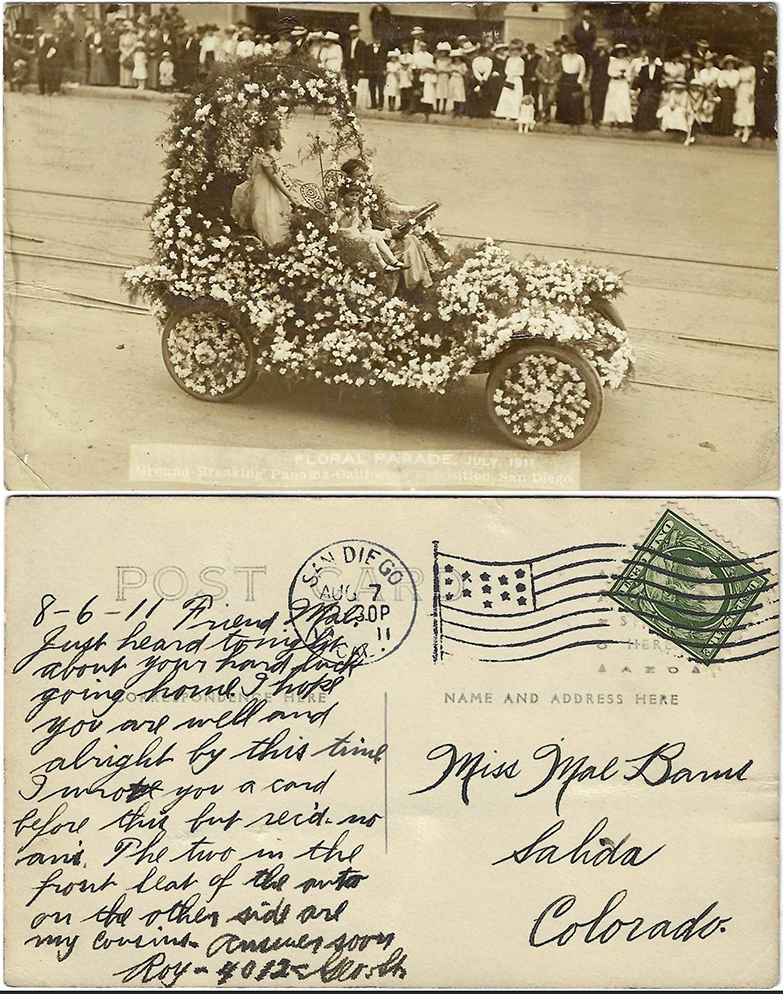 FLORAL PARADE, JULY, 1911
Ground-Breaking Panama-California Exposition, San Diego.
POST CARD
SAN DIEGO
AUG 7
30P
11
CAL.
CORRESPONDENCE HERE
NAME AND ADDRESS HERE
8-6-11 Friend Mae:
Just heard tonight
about your hard luck
going home. I hope
you are well and
alright by this time
I wrote you a card
before this but rec'd. no
ans. The two in the
front seat of the auto
on the other side are
my cousins- Answer soon
Roy- 4012-
Miss Mae
Salida
Colorado.